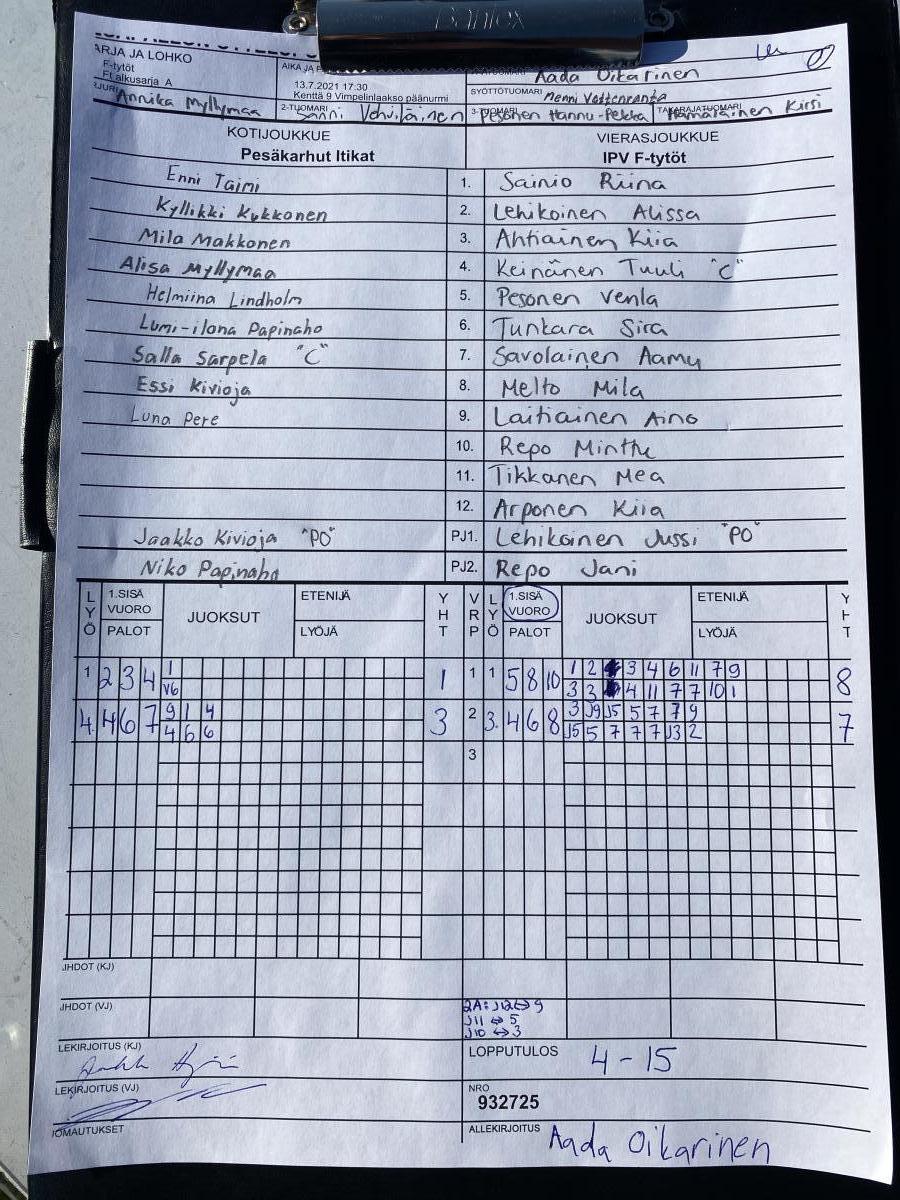 ARJA JA LOHKO
F-tytöt
Ft alkusarja A
AIKA JA
13.7.2021 17:30
Kenttä 9 Vimpelinlaakso päänurmi
Aada Oikarinen
SYÖTTÖTUOMARI
Annika Myllymaa
2-TUOMARI
3-TUOMARI Pesonen Hannu-Pekka
TAKARAJATUOMARI Hämäläinen Kirsi
KOTIJOUKKUE VIERASJOUKKUE
Pesäkarhut Itikat IPV F-tytöt
Enni Taimi 1. Sainio Riina
Kyllikki Kykkonen 2. Lehikoinen Alissa
Mila Makkonen 3. Ahtiainen Kiia
Alisa Myllymaa 4. Keinänen Tuuli "C"
Helmiina Lindholm 5. Pesonen Venla
Lumi-ilona Papinaho 6. Tunkara Sira
Salla Sarpela "C" 7. Savolainen Aamu
Essi Kivioja 8. Melto Mila
Luna Pere 9. Laitiainen Aino
10. Repo Minttu
11. Tikkanen Mea
12. Arponen Kiia
Jaakko Kivioja "PO" PJ1. Lehikoinen Jussi "PO"
Niko Papinaho PJ2. Repo Jani
LYÖ 1.SISÄ VUORO JUOKSUT ETENIJÄ YHT VRP LYÖ 1.SISÄ VUORO JUOKSUT ETENIJÄ YHT
PALOT LYÖJÄ PALOT LYÖJÄ
1 2 3 4 1 1 1 1 5 8 10 1 2 3 4 6 11 7 9 8
V6 3 3 4 11 7 7 10 1
4. 4 6 7 9 1 4 3 2 3. 4 6 8 3 J9 J5 5 7 7 9 7
4 6 6 J5 5 7 7 7 J3 2
3
JHDOT (KJ)
JHDOT (VJ)
2A: J12 ↔ 9
J11 ↔ 5
J10 ↔ 3
LEKIRJOITUS (KJ)
LOPPUTULOS 4-15
LEKIRJOITUS (VJ)
NRO
932725
IOMAUTUKSET
ALLEKIRJOITUS Aada Oikarinen